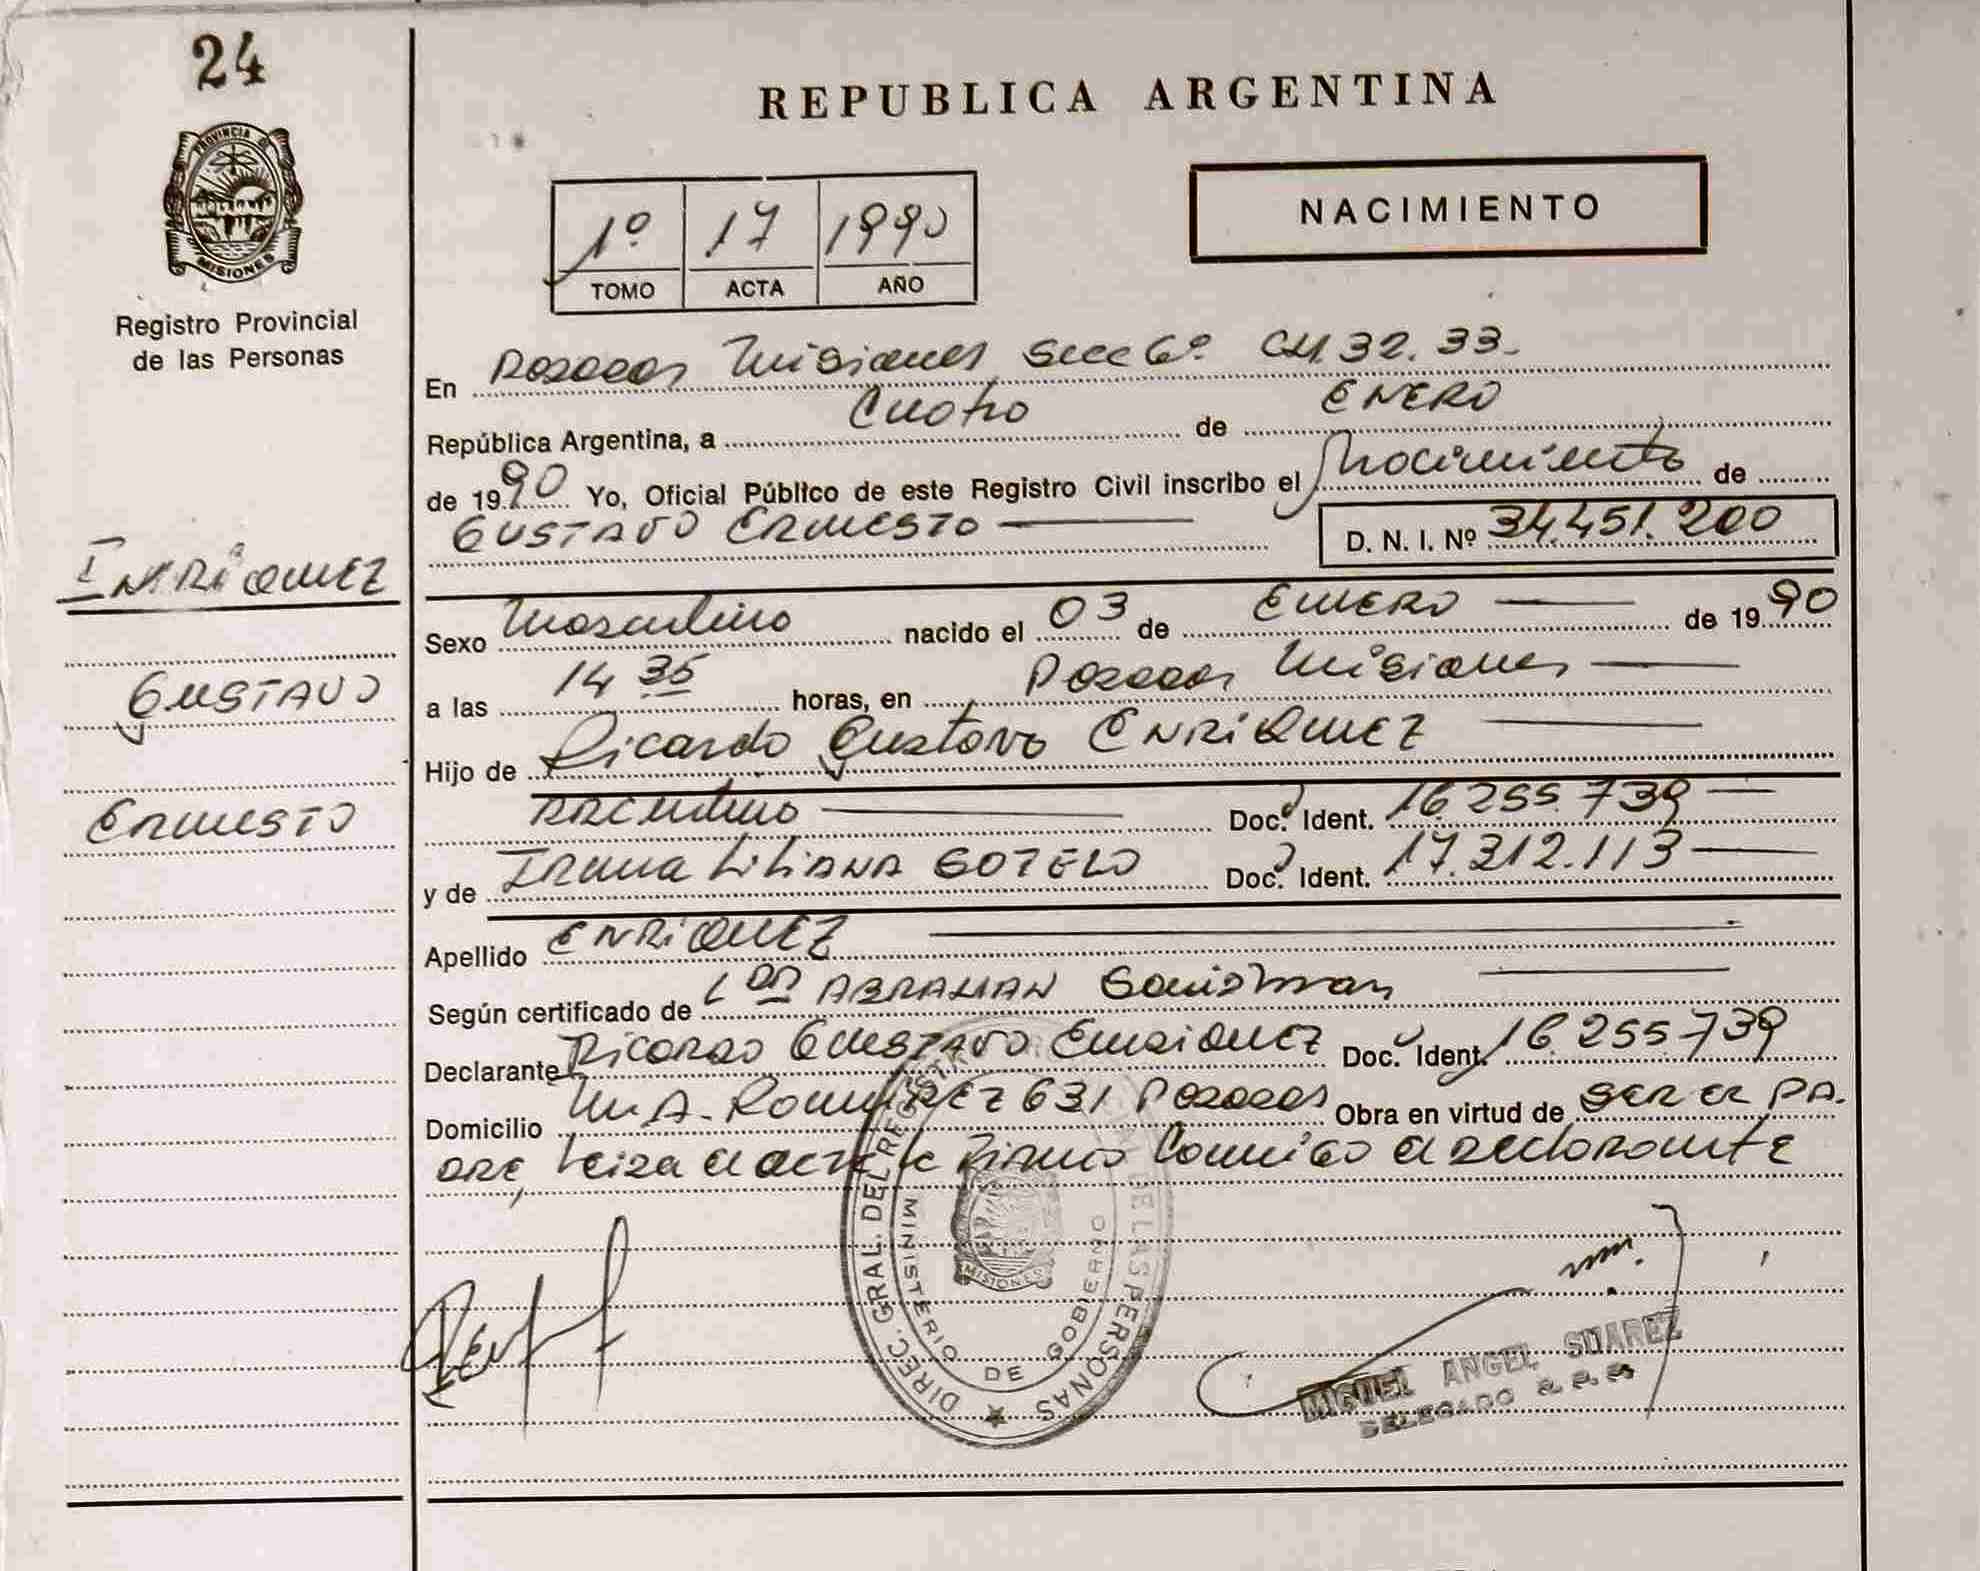 24
REPUBLICA ARGENTINA
PROVINCIA DE
MISIONES
Registro Provincial
de las Personas
1º 17 1990
TOMO ACTA AÑO
NACIMIENTO
En Posadas Misiones Secc 6º CH. 32. 33.
República Argentina, a Cuatro de ENERO
de 1990 Yo, Oficial Público de este Registro Civil inscribo el Nacimiento de
GUSTAVO ERNESTO D. N. I. Nº 34.451.200
ENRIQUEZ
GUSTAVO
ERNESTO
Sexo Masculino nacido el 03 de ENERO de 1990
a las 14 35 horas, en Posadas Misiones
Hijo de Ricardo Gustavo ENRIQUEZ
Argentino Doc. Ident. 16.255.739
y de Irma LiLiANA SOTELO Doc. Ident. 17.312.113
Apellido ENRIQUEZ
Según certificado de ABRAHAN
Declarante Ricardo GUSTAVO ENRIQUEZ Doc. Ident. 16.255.739
Domicilio M.A. Romirez 631 Posadas Obra en virtud de SER EL PA.
DRE, Leida el acta la Firma Conmigo el declarante
DIREC. GRAL. DEL REGISTRO DE LAS PERSONAS
MINISTERIO DE GOBIERNO
MISIONES
MIGUEL ANGEL SUAREZ
DELEGADO